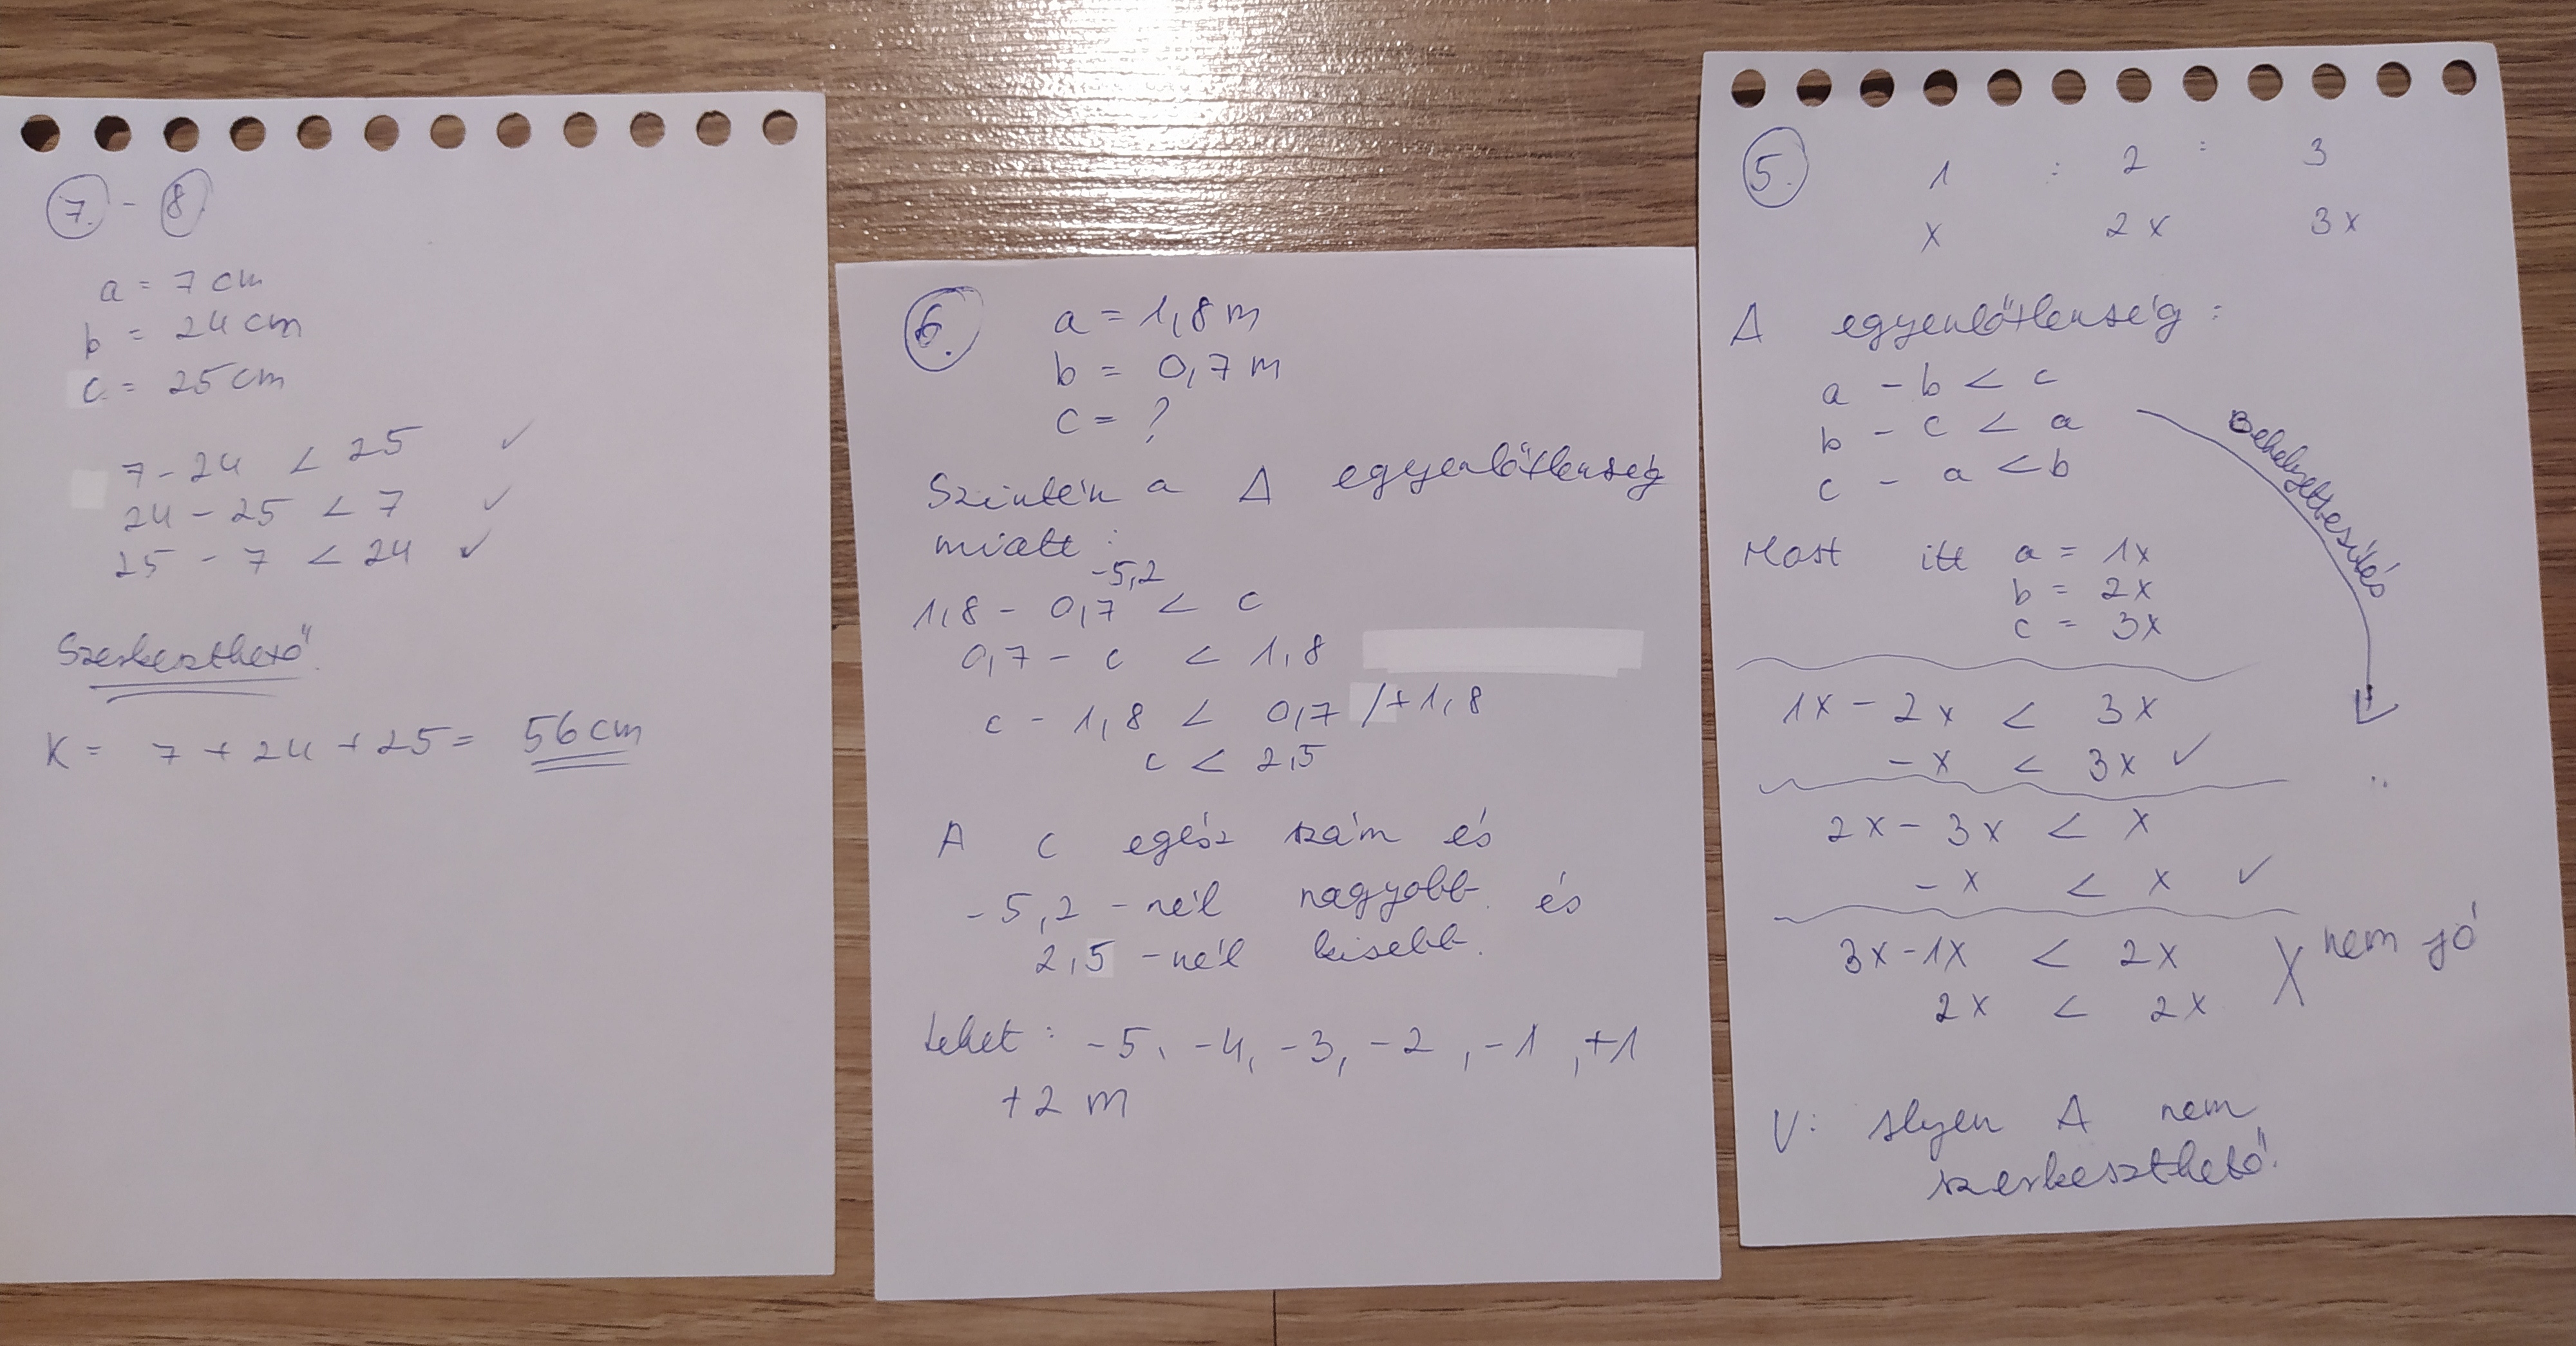 7. - 8
a = 7 cm
b = 24 cm
c = 25 cm
7 - 24 < 25 ✓
24 - 25 < 7 ✓
25 - 7 < 24 ✓
Szerkeszthető.
K = 7 + 24 + 25 = 56 cm
6.
a = 1,8 m
b = 0,7 m
c = ?
Szintén a Δ egyenlőtlenség
miatt :
-5,2
1,8 - 0,7 < c
0,7 - c < 1,8
c - 1,8 < 0,7 /+1,8
c < 2,5
A c egész szám és
-5,2 -nél nagyobb és
2,5 -nél kisebb.
Lehet : -5, -4, -3, -2, -1, +1
+2 m
5.
1 : 2 : 3
x 2x 3x
Δ egyenlőtlenség :
a - b < c
b - c < a
c - a < b
Behelyettesítés
Most itt a = 1x
b = 2x
c = 3x
1x - 2x < 3x
-x < 3x ✓
2x - 3x < x
-x < x ✓
3x - 1x < 2x X nem jó
2x < 2x
V: Ilyen Δ nem
szerkeszthető.